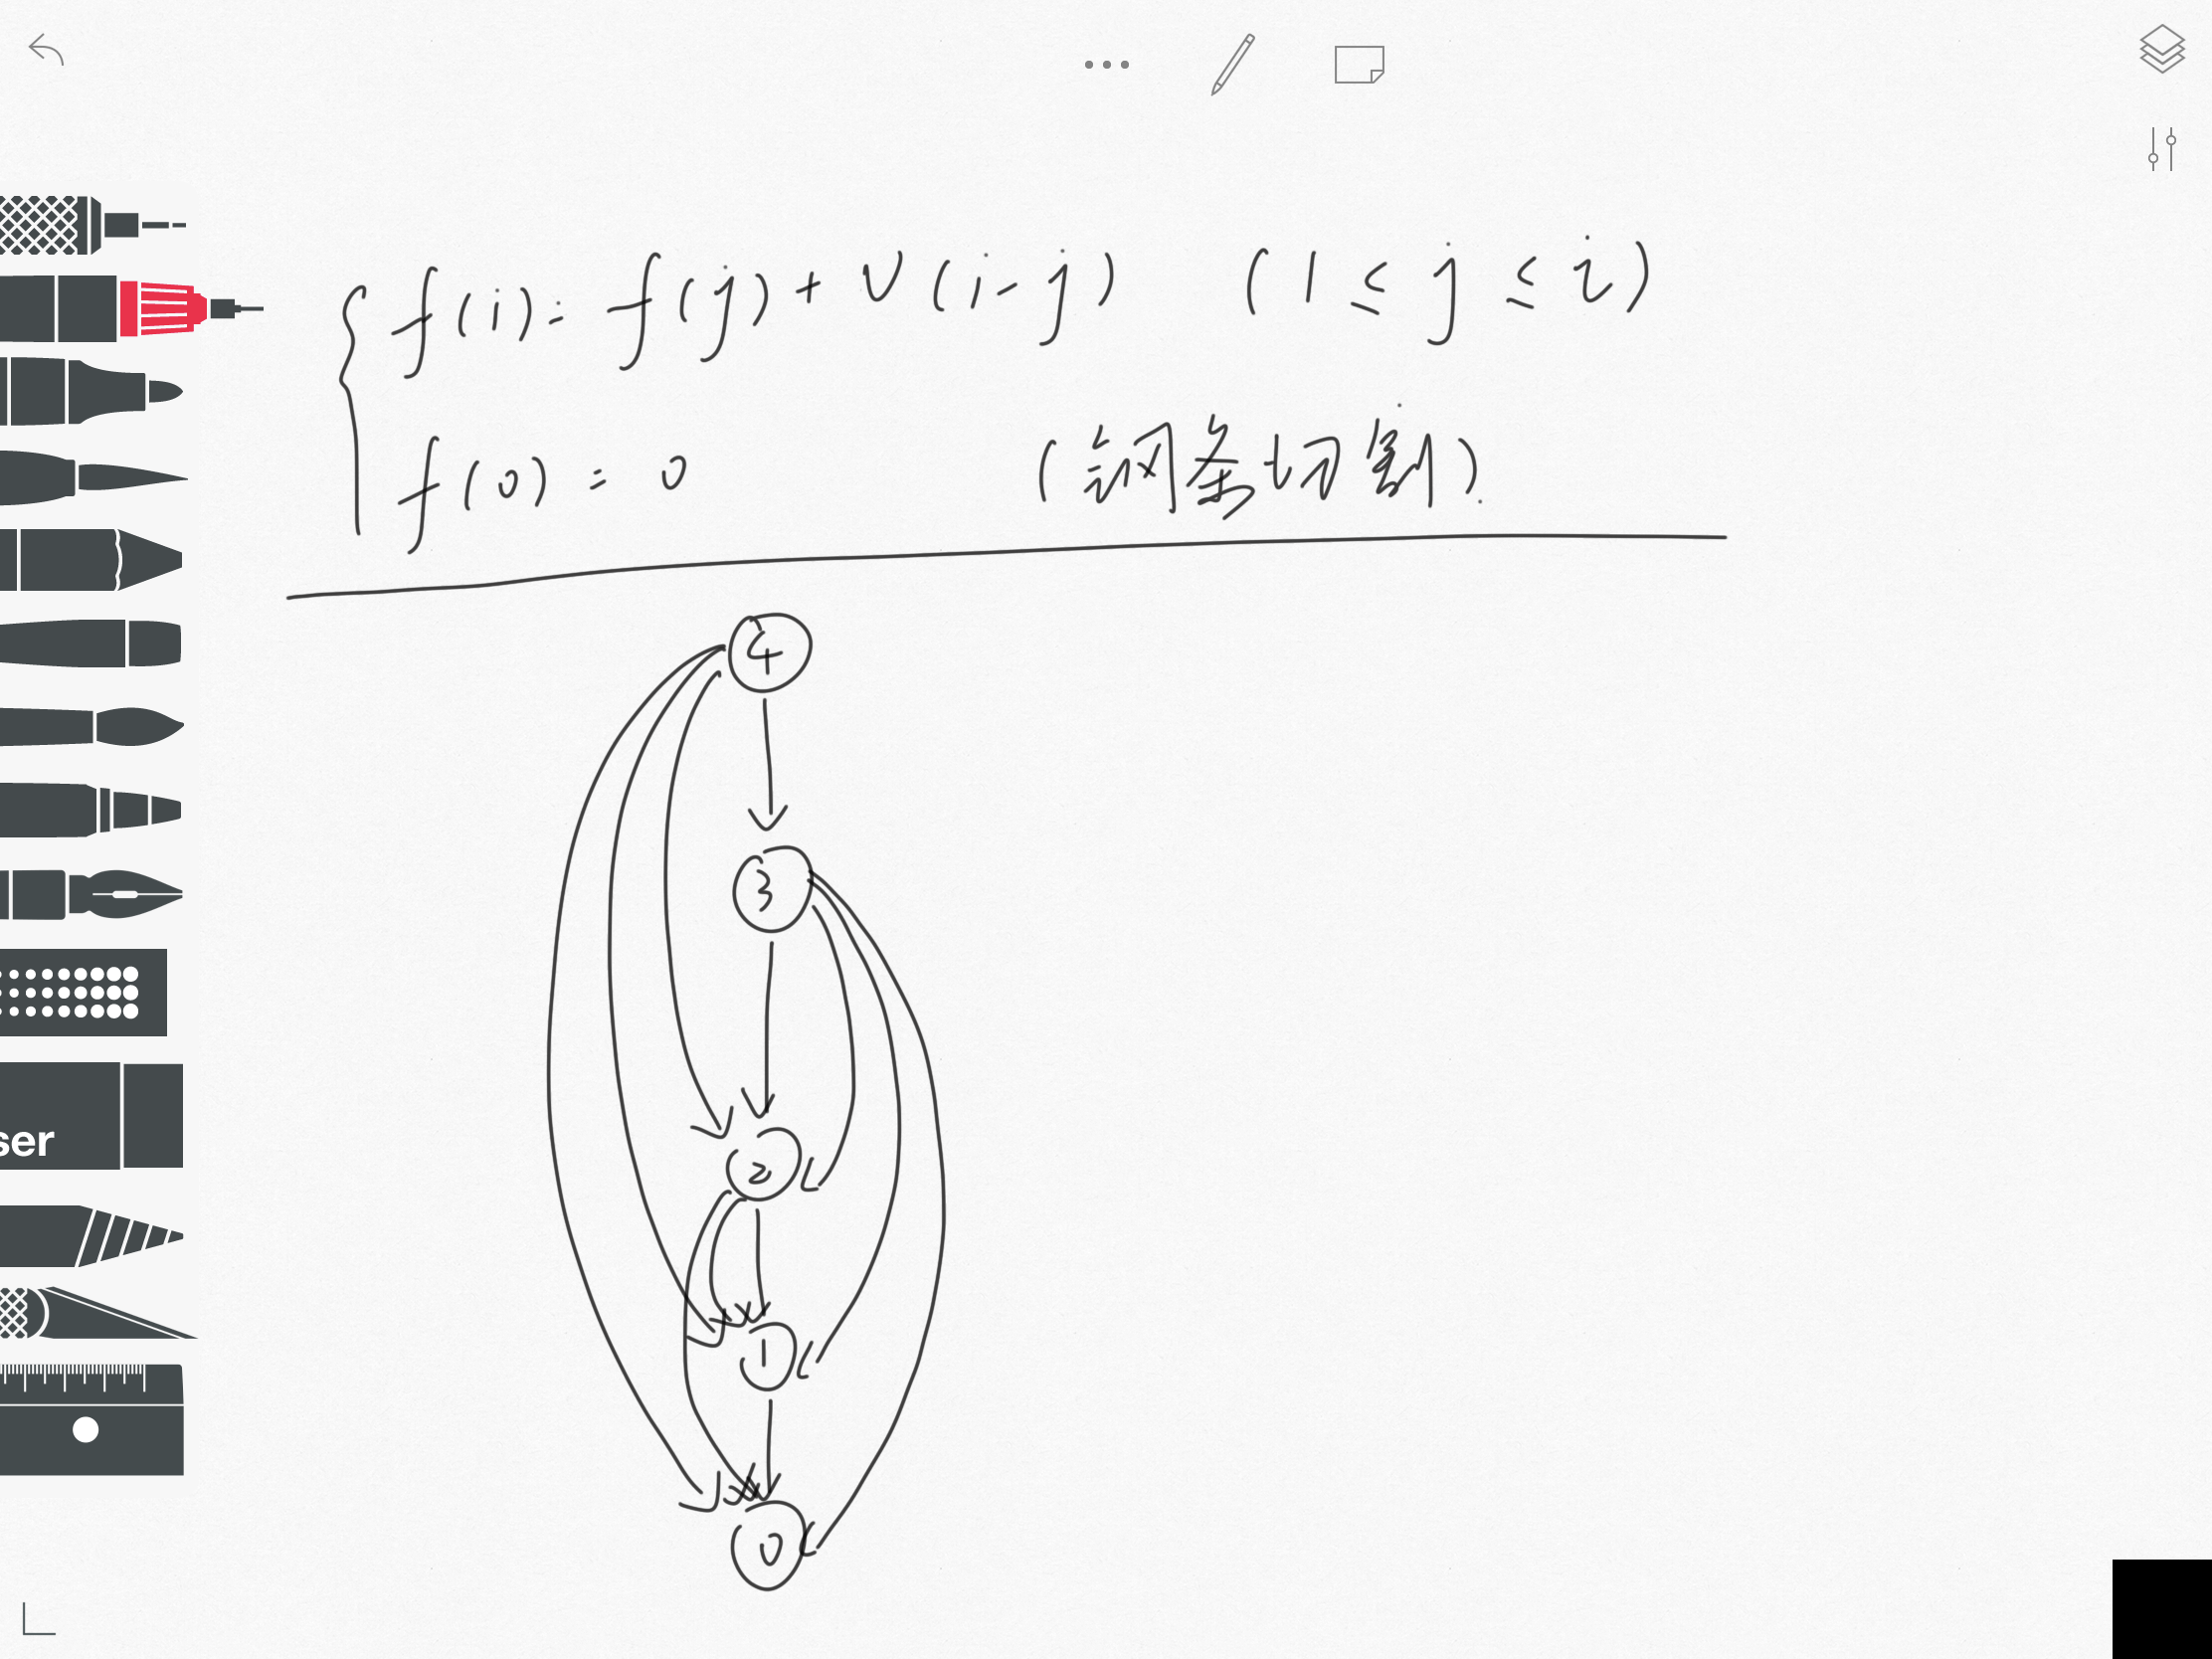 f(i) = f(j) + V(i-j) (1 ≤ j ≤ i)
f(0) = 0 (钢条切割).
4
3
2
1
0
ser